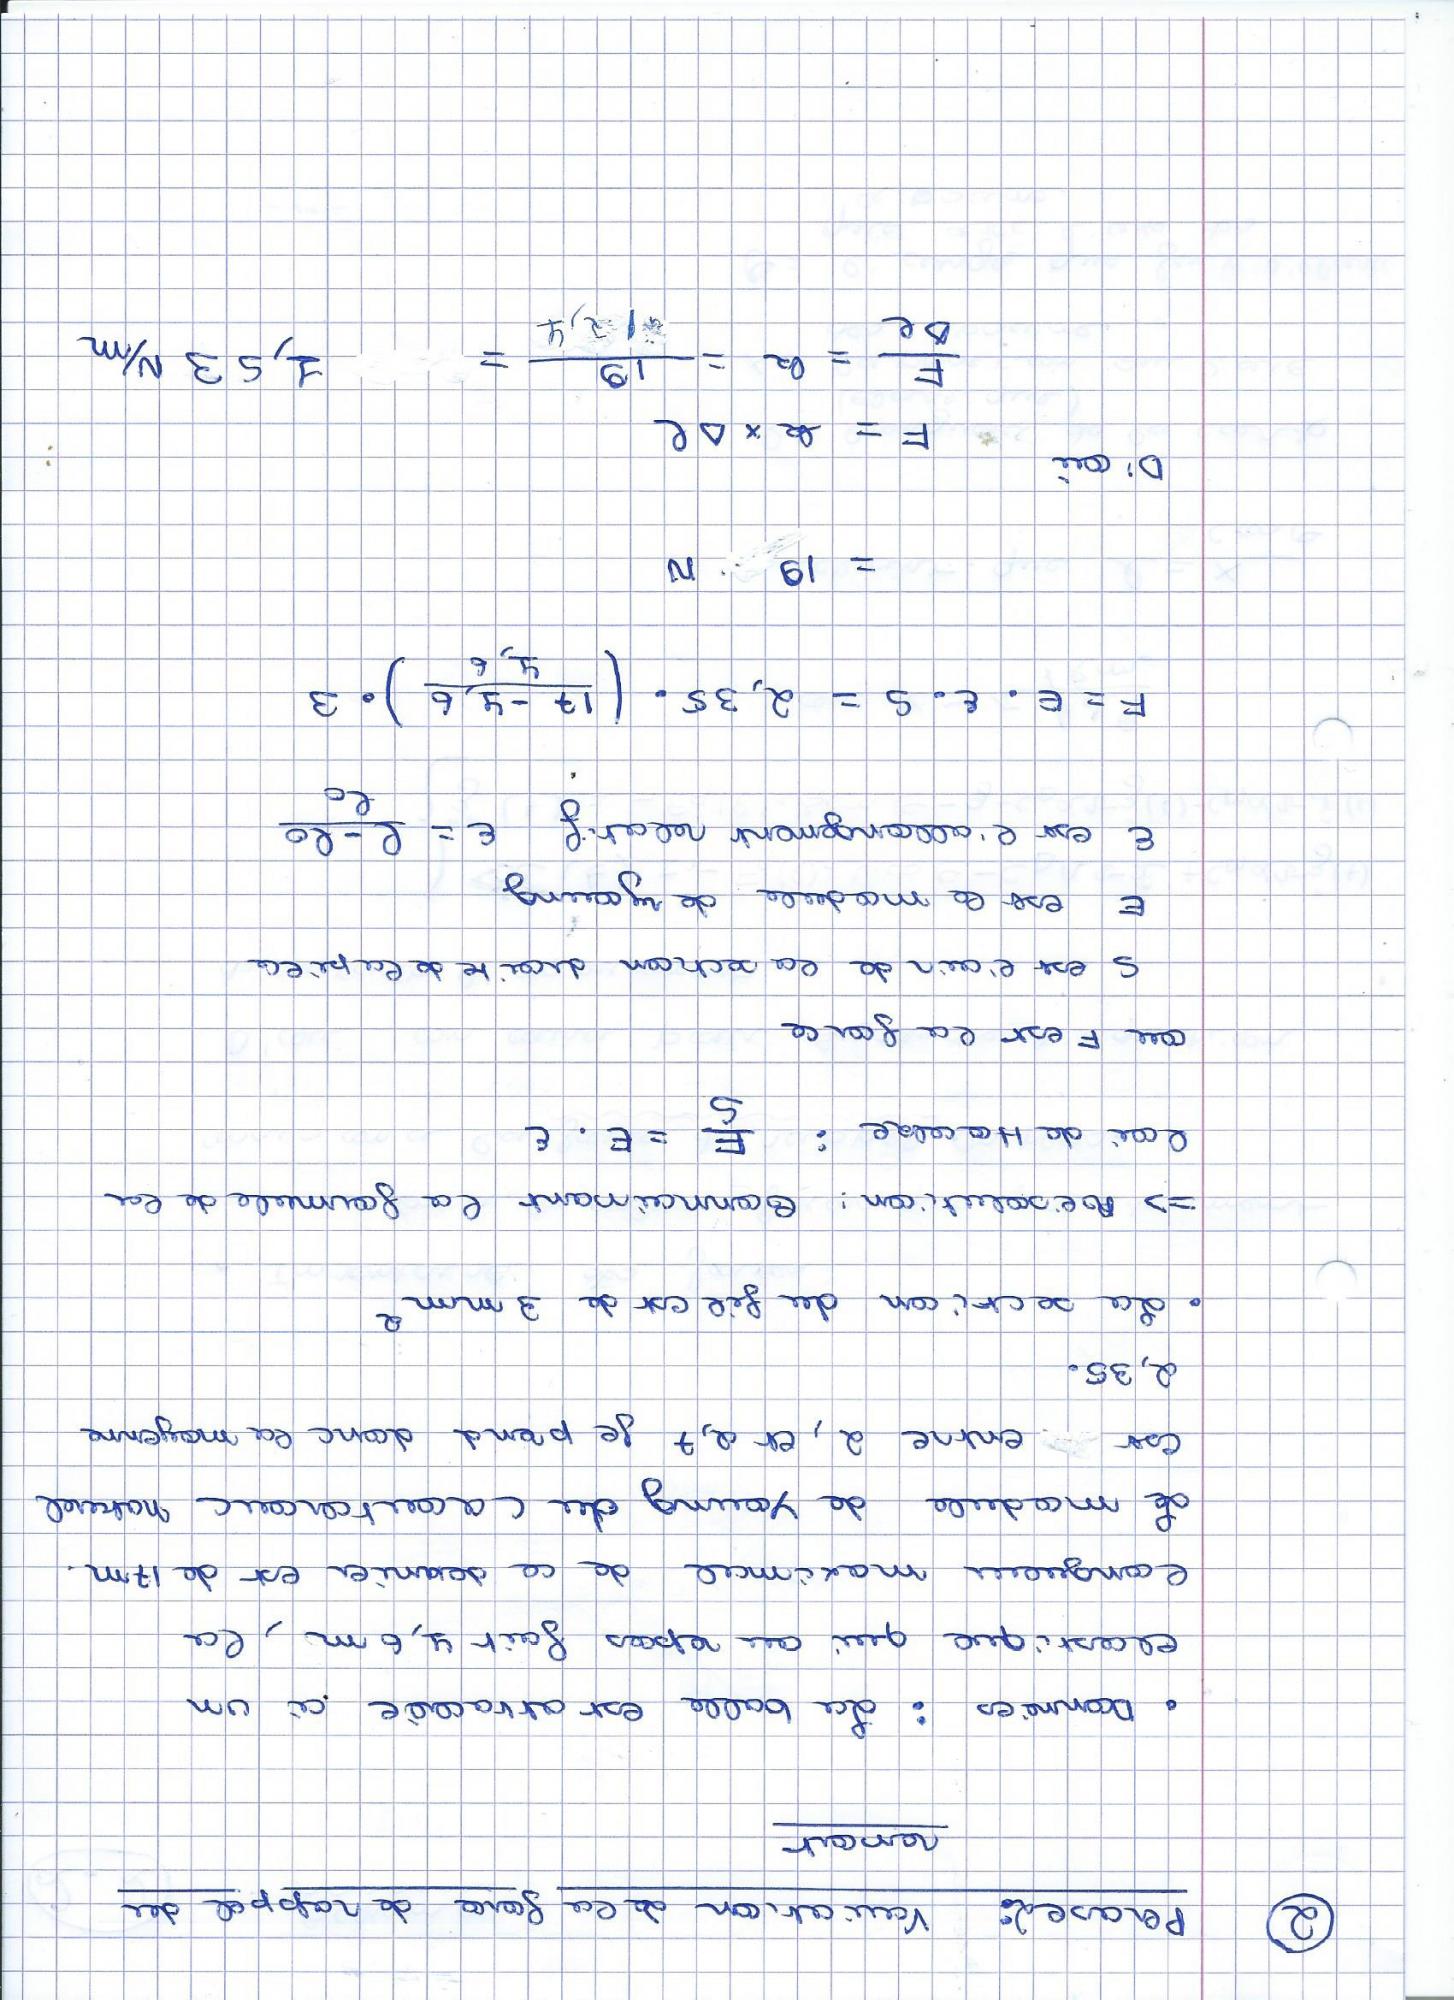 ②
Phase 2: Variation de la force de rappel du
ressort
• Données : La balle est attachée à un
élastique qui au repos fait 4,6 m, la
longueur maximal de ce dernier est de 17m.
Le module de Young du Caoutchouc naturel
est entre 2, et 2,7 je prend donc la moyenne
2,35.
• La section du fil est de 3 mm²
=> Résolution : Connaissant la formule de la
loi de Hooke : F/S = E . ε
ou F est la force
S est l'air de la section droite de la pièce
E est le module de young
ε est l'allongement relatif ε = (l - l0)/l0
F = E . ε . S = 2,35 . (17 - 4,6 / 4,6) . 3
= 19 N
D'où
F = k × Δl
F/Δl = k = 19/12,4 = 1,53 N/m